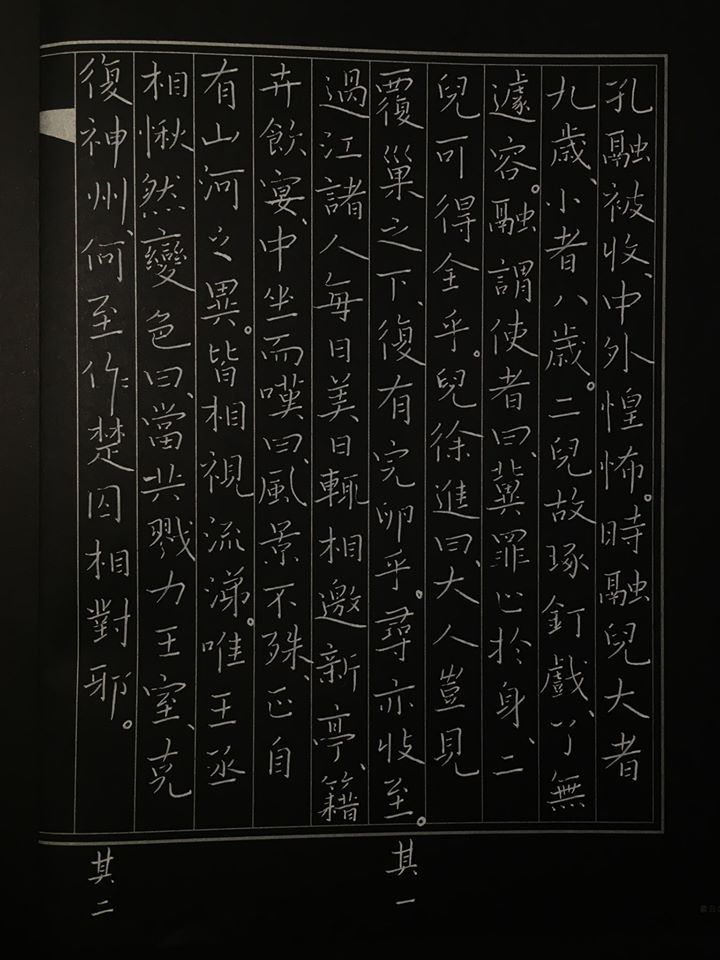 孔融被收、中外惶怖。時融兒大者
九歲、小者八歲。二兒故琢釘戲、了無
遽容。融謂使者曰、冀罪止於身、二
兒可得全乎。兒徐進曰、大人豈見
覆巢之下、復有完卵乎。尋亦收至。
其一
過江諸人每日美日輒相邀新亭、籍
卉飲宴、中坐而嘆曰、風景不殊、正自
有山河之異。皆相視流涕。唯王丞
相愀然變色曰、當共戮力王室、克
復神州、何至作楚囚相對邪。
其二